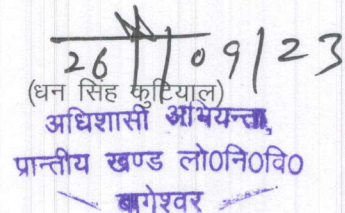 26/09/23
(धन सिंह कुटियाल)
अधिशासी अभियन्ता,
प्रान्तीय खण्ड लो०नि०वि०
बागेश्वर